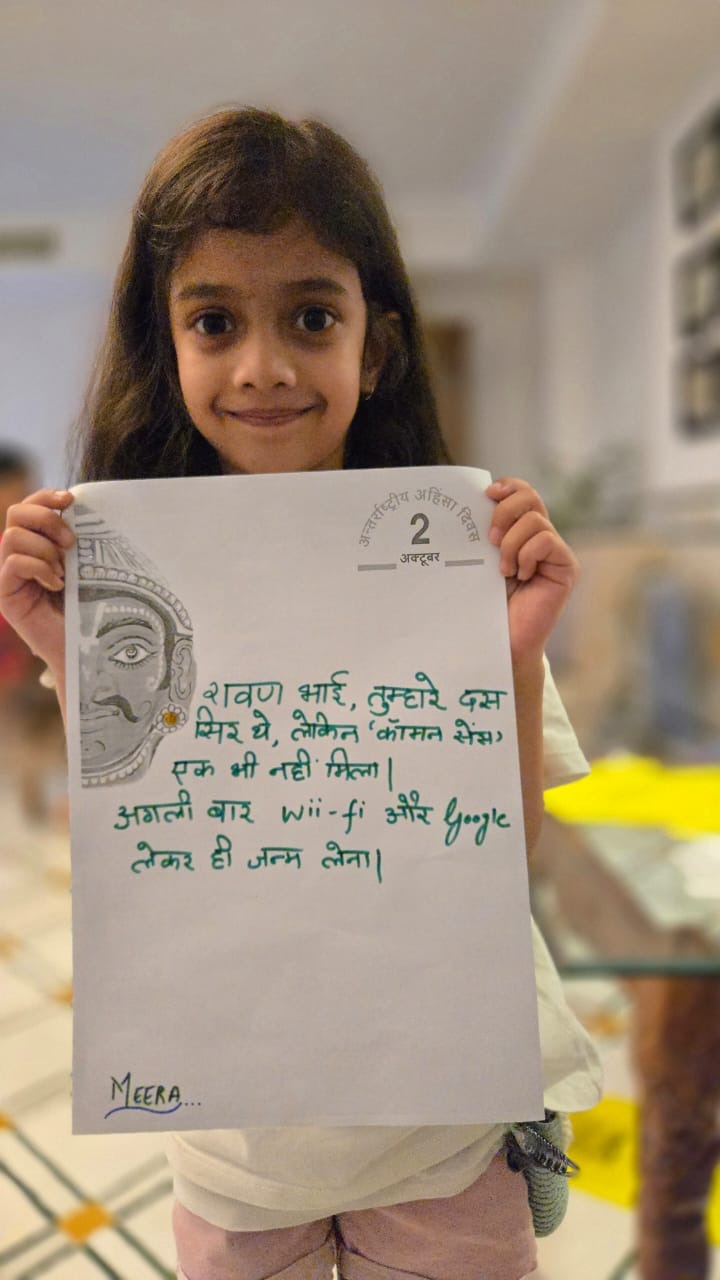 अन्तर्राष्ट्रीय अहिंसा दिवस
2
अक्टूबर
रावण भाई, तुम्हारे दस
सिर थे, लेकिन 'कॉमन सेंस'
एक भी नहीं मिला|
अगली बार wii-fi और Google
लेकर ही जन्म लेना|
MEERA...